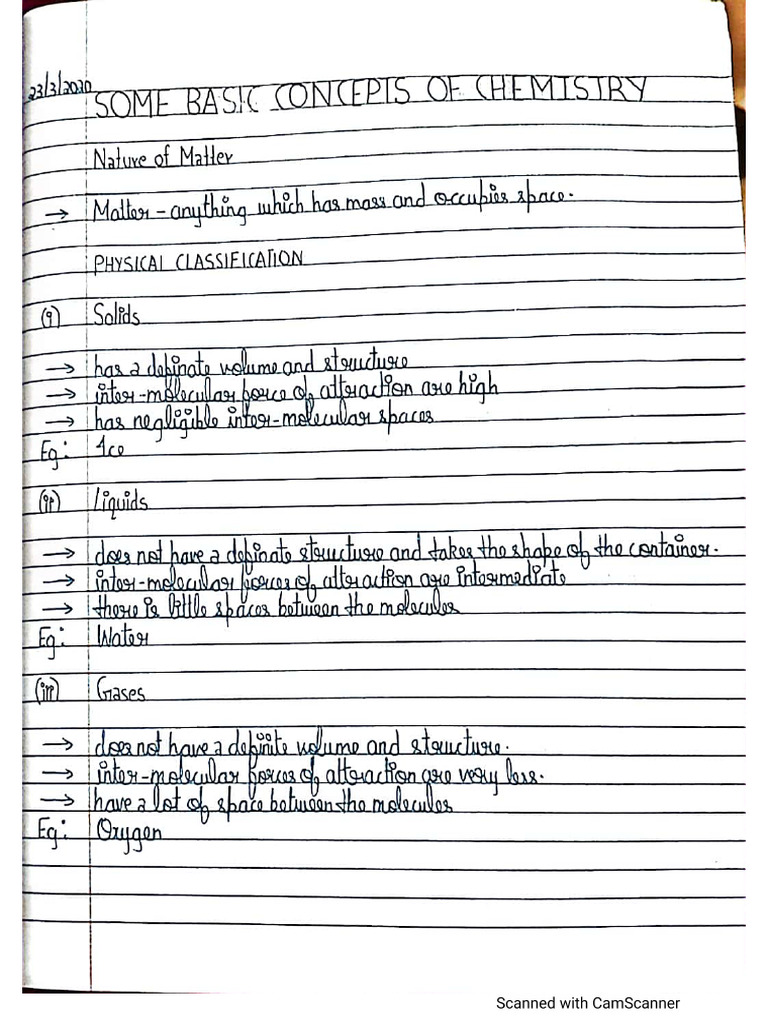 23/3/2020
SOME BASIC CONCEPTS OF CHEMISTRY
Nature of Matter
→ Matter - anything which has mass and occupies space.
PHYSICAL CLASSIFICATION
(i) Solids
→ has a definate volume and structure
→ inter-molecular force of attraction are high
→ has negligible inter-molecular spaces
Eg: Ice
(ii) Liquids
→ does not have a definate structure and takes the shape of the container.
→ inter-molecular forces of attraction are intermediate
→ there is little spaces between the molecules
Eg: Water
(iii) Gases
→ does not have a definite volume and structure.
→ inter-molecular forces of attraction are very less.
→ have a lot of space between the molecules
Eg: Oxygen
Scanned with CamScanner